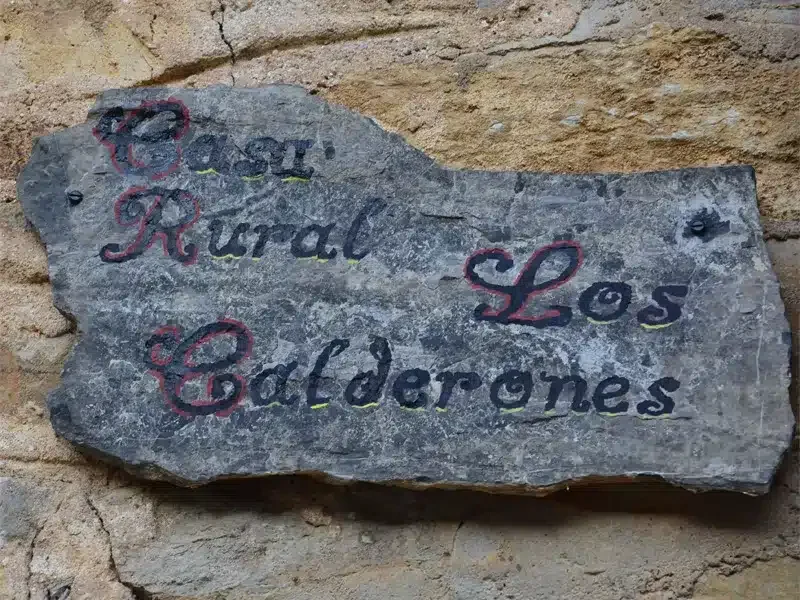 Casa
Rural
Los
Calderones